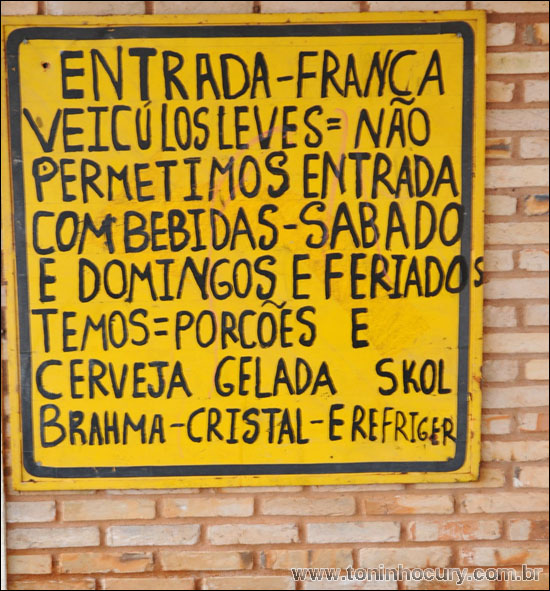 ENTRADA-FRANÇA
VEICÚLOS LEVES= NÃO
PERMETIMOS ENTRADA
COM BEBIDAS-SABADO
E DOMINGOS E FERIADOS
TEMOS=PORCÕES E
CERVEJA GELADA SKOL
BRAHMA-CRISTAL-E REFRIGER
www.toninhocury.com.br